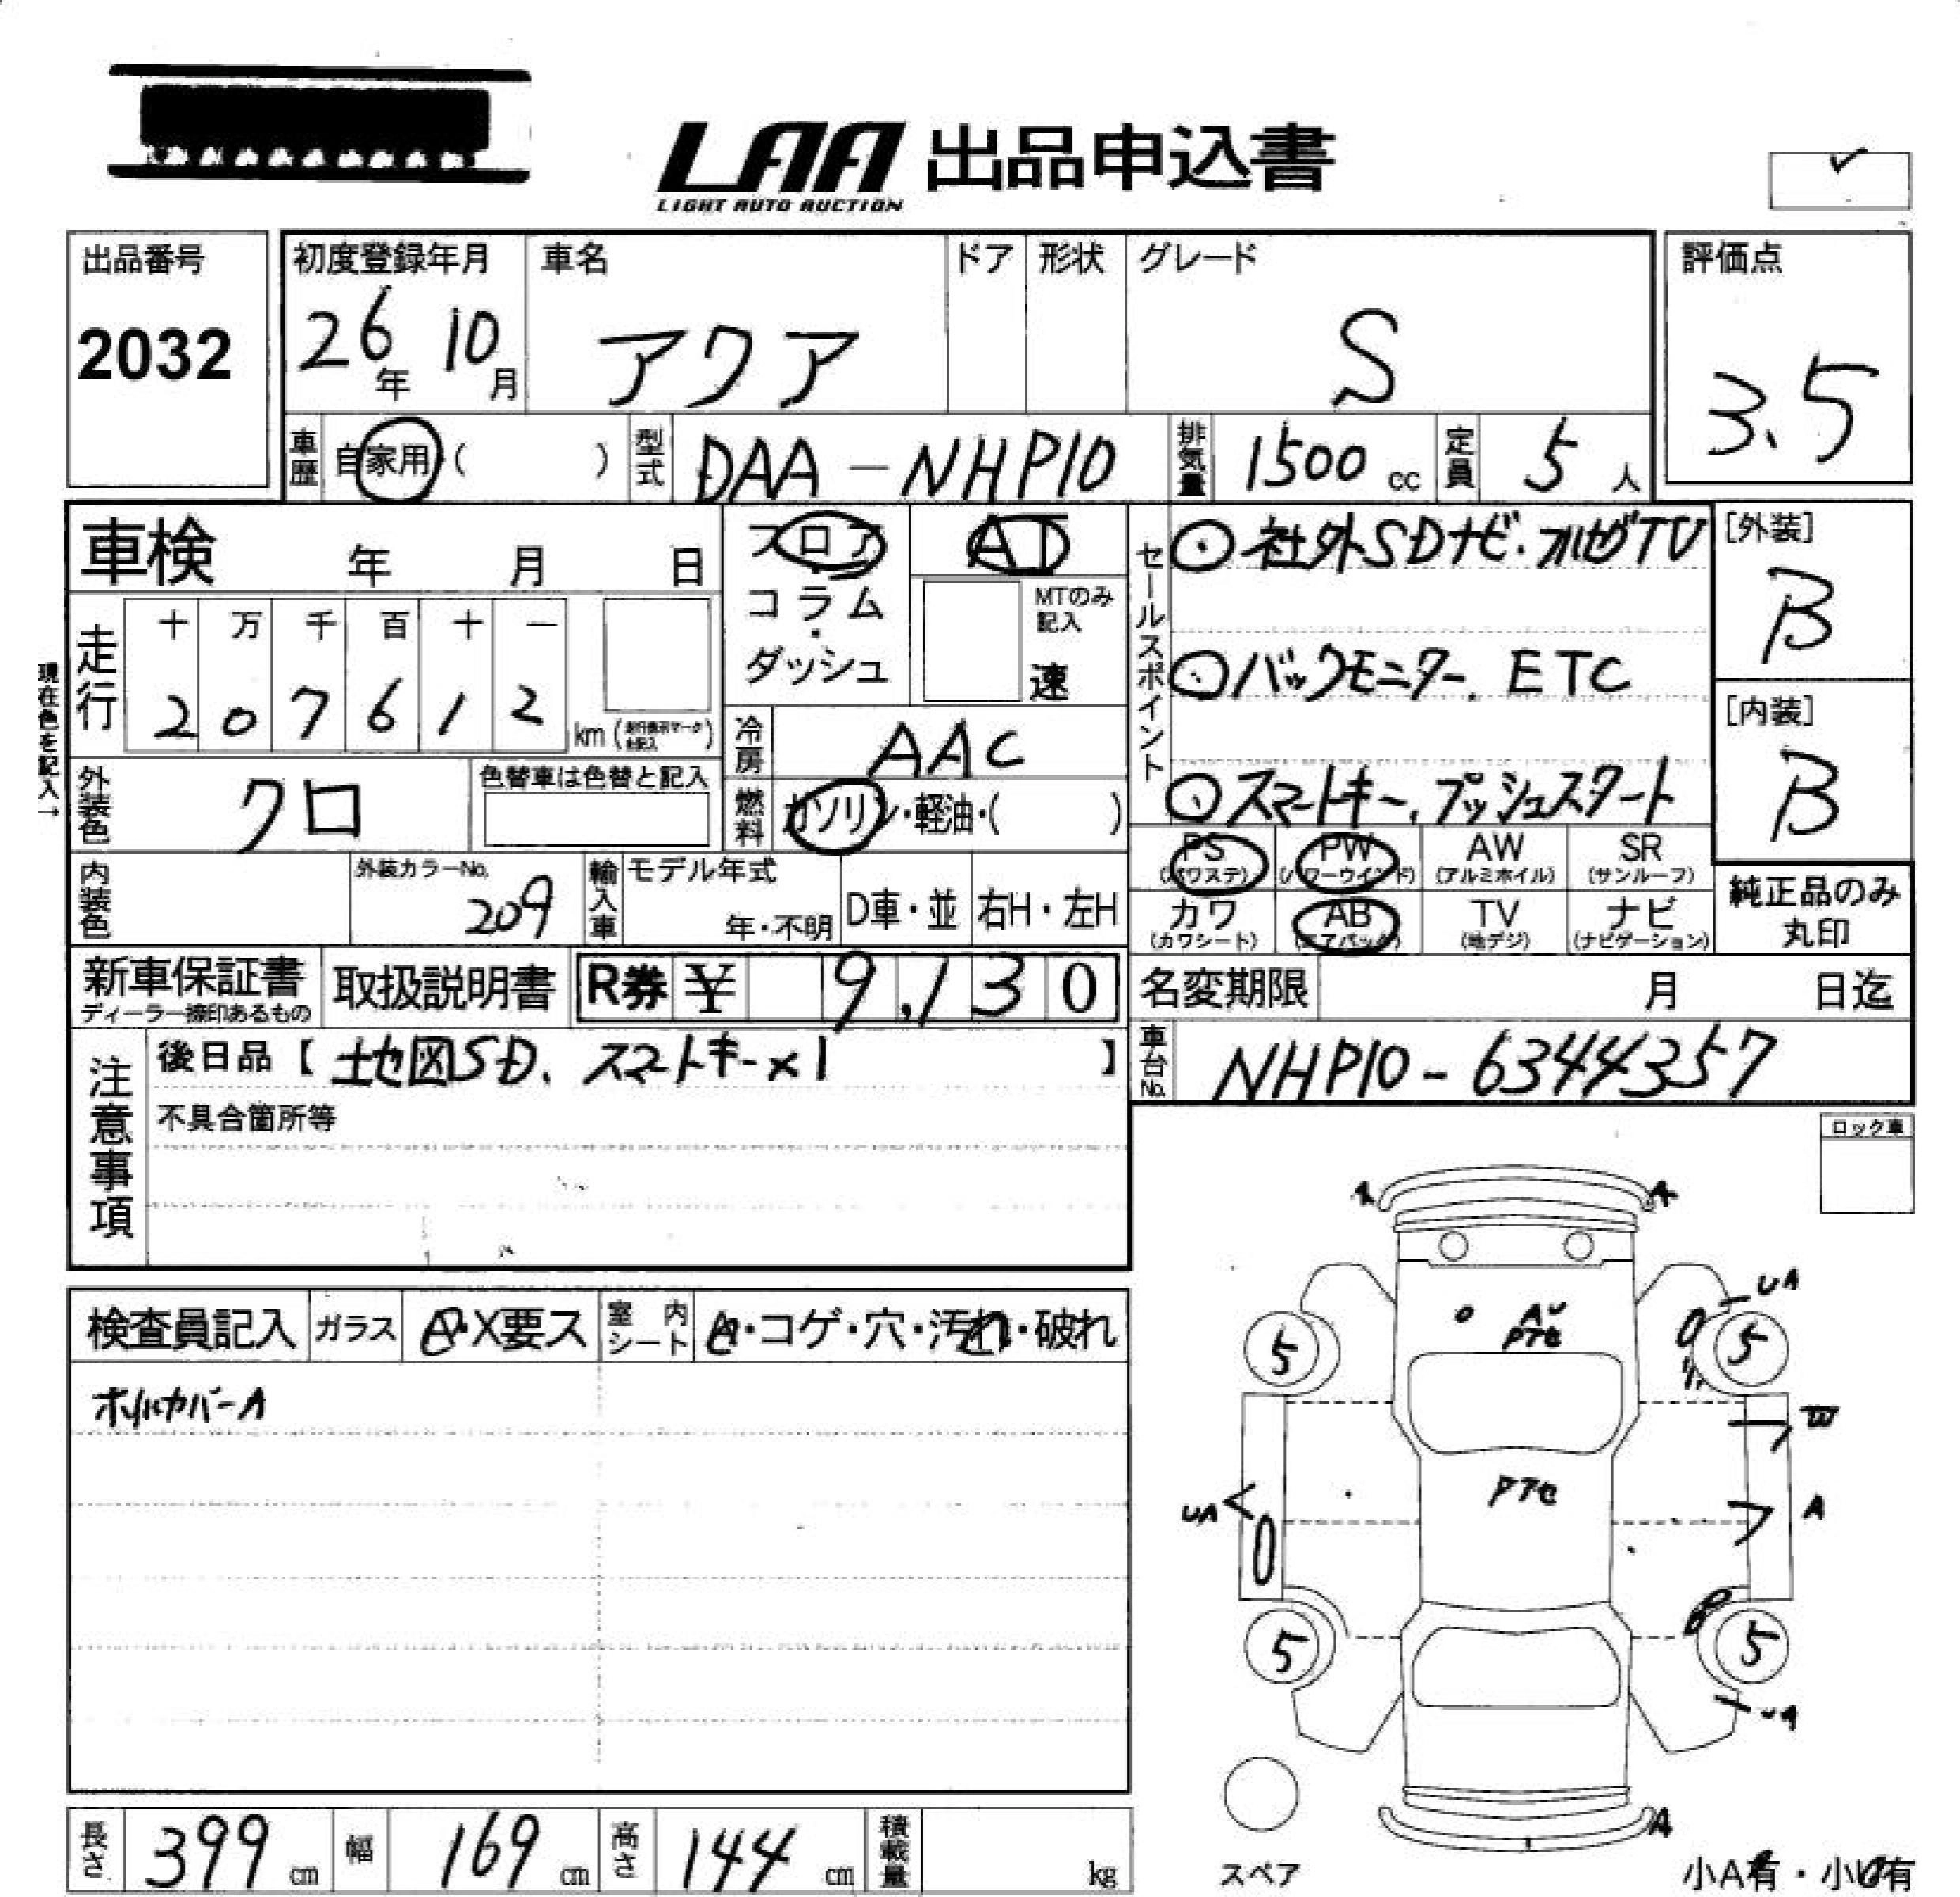 LAA 出品申込書
LIGHT AUTO AUCTION
出品番号
2032
初度登録年月
26年 10月
車名
アクア
ドア
形状
グレード
S
評価点
3.5
車歴 自家用・( )
型式 DAA-NHP10
排気量 1500 cc
定員 5 人
車検 年 月 日
走行
十 万 千 百 十 一
2 0 7 6 1 2 km
現在色を記入→
外装色 クロ
色替車は色替と記入
内装色
外装カラーNo. 209
フロア・コラム・ダッシュ
AT
MTのみ記入
速
冷房 AAC
燃料 ガソリン・軽油・( )
輸入車 モデル年式
年・不明
D車・並
右H・左H
セールスポイント
社外SDナビ.フルセグTV
バックモニター. ETC
スマートキー.プッシュスタート
[外装]
B
[内装]
B
PS (パワステ)
PW (パワーウインド)
AW (アルミホイル)
SR (サンルーフ)
カワ (カワシート)
AB (エアバック)
TV (地デジ)
ナビ (ナビゲーション)
純正品のみ
丸印
新車保証書
ディーラー捺印あるもの
取扱説明書
R券 ¥ 9,130
名変期限 月 日迄
車台No. NHP10-6344357
注意事項
後日品【 地図SD. スマートキー×1 】
不具合箇所等
ロック車
検査員記入
ガラス
・X要ス
室内シート
・コゲ・穴・汚れ・破れ
ホイルカバーA
A
A
UA
5
5
W
A
UA
PTセ
5
5
UA
A
スペア
小A有・小U有
長さ 399 cm
幅 169 cm
高さ 144 cm
積載量 kg